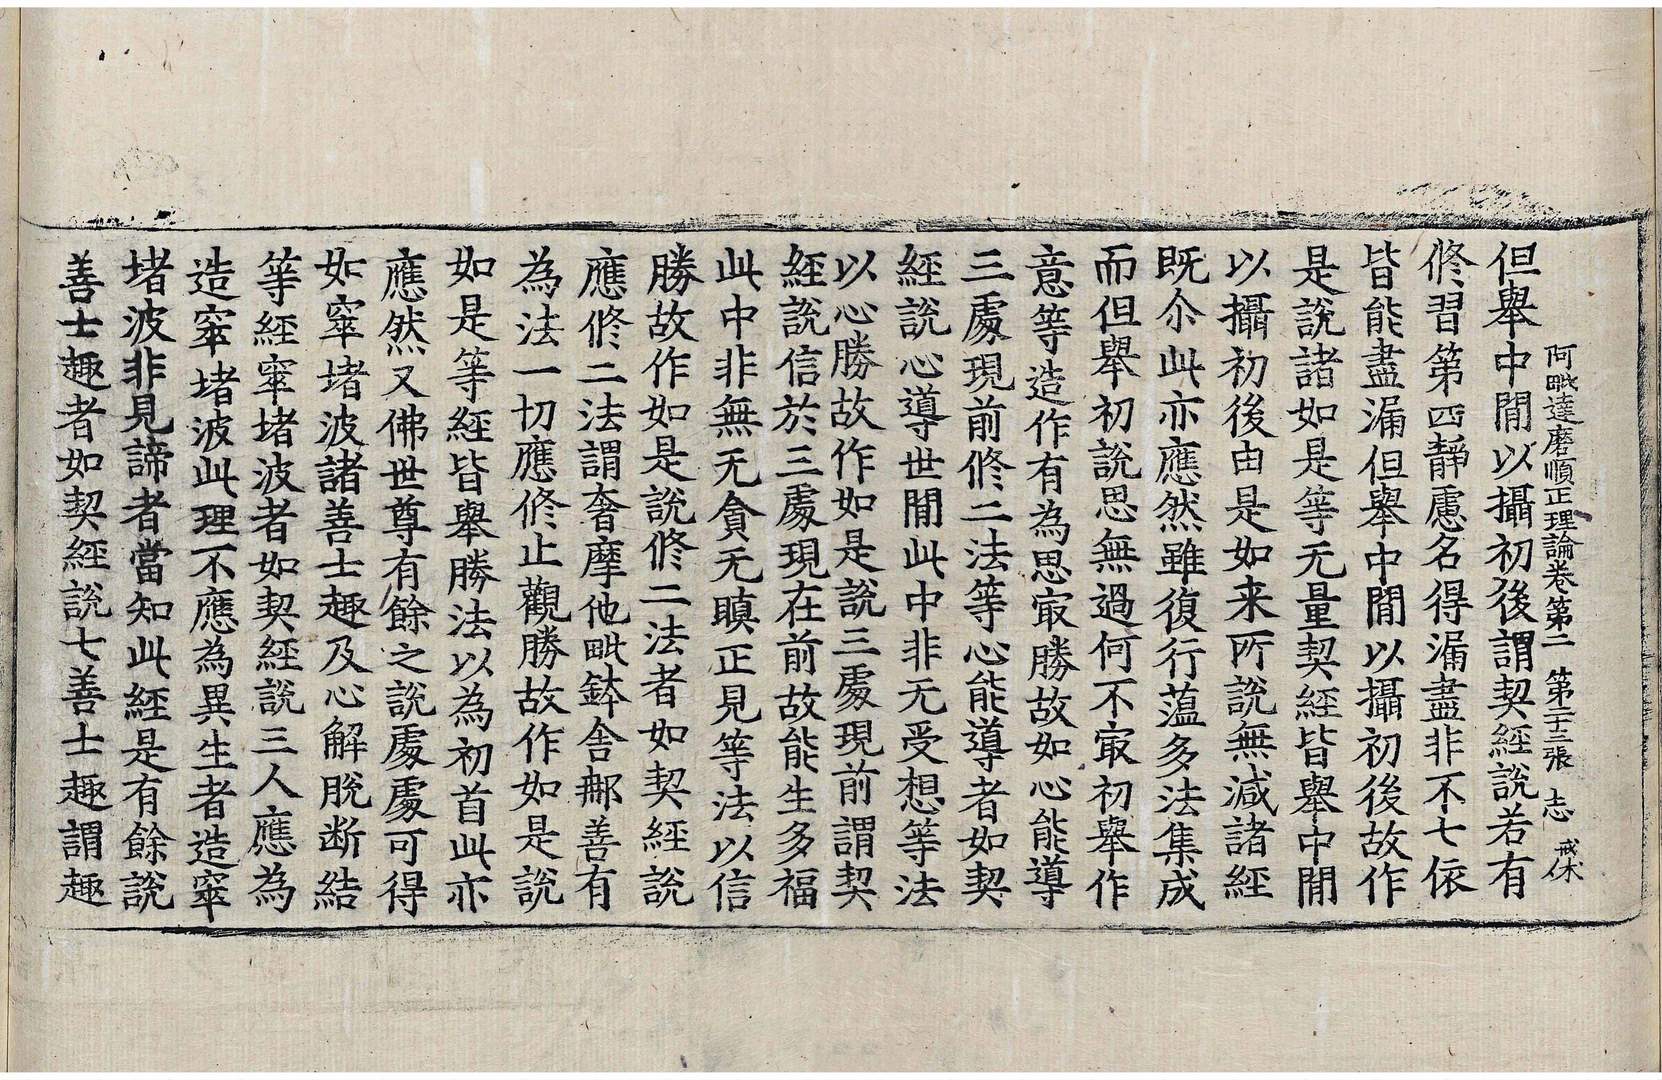 阿毗達磨順正理論卷第二 第二十三張 志 戒休
但舉中間以攝初後謂契經說若有
修習第四靜慮名得漏盡非不七依
皆能盡漏但舉中間以攝初後故作
是說諸如是等无量契經皆舉中間
以攝初後由是如来所說無減諸經
既尒此亦應然雖復行蘊多法集成
而但舉初說思無過何不㝡初舉作
意等造作有為思㝡勝故如心能導
三處現前修二法等心能導者如契
經說心導世間此中非无受想等法
以心勝故作如是說三處現前謂契
經說信於三處現在前故能生多福
此中非無无貪无瞋正見等法以信
勝故作如是說修二法者如契經說
應修二法謂奢摩他毗鉢舍那善有
為法一切應修止觀勝故作如是說
如是等經皆舉勝法以為初首此亦
應然又佛世尊有餘之說處處可得
如窣堵波諸善士趣及心解脫断結
等經窣堵波者如契經說三人應為
造窣堵波此理不應為異生者造窣
堵波非見諦者當知此經是有餘說
善士趣者如契經說七善士趣謂趣